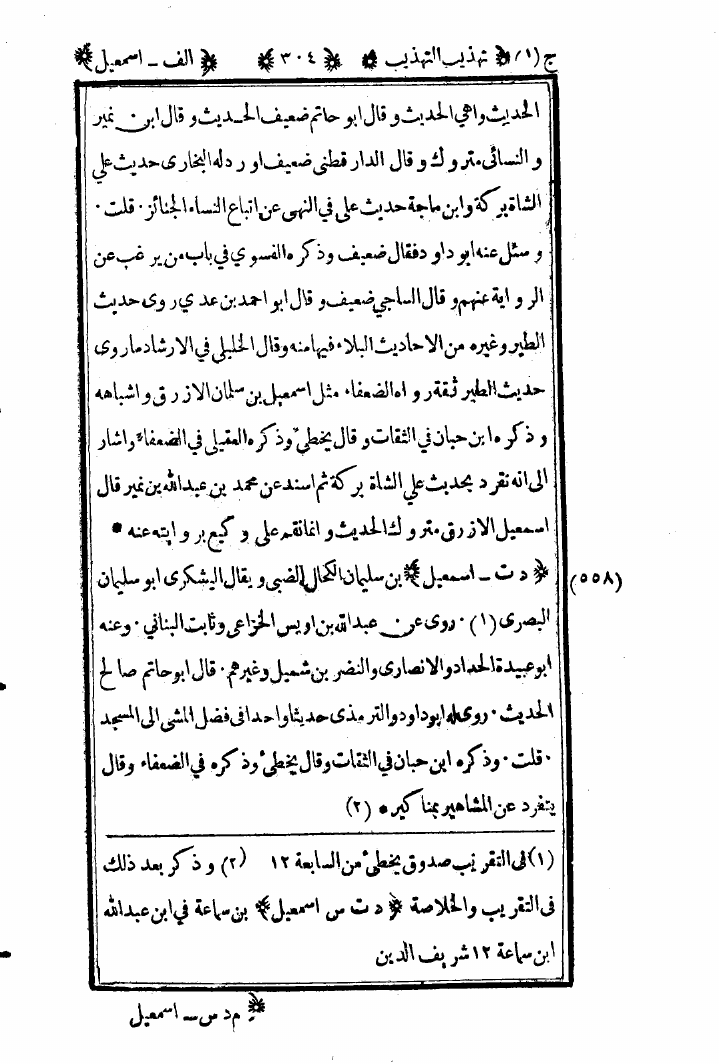 ج (١) ﴿ تهذيب التهذيب ﴾ ﴿ ٣٠٤ ﴾ ﴿ الف ـ اسمعيل ﴾
الحديث واهي الحديث وقال ابو حاتم ضعيف الحديث وقال ابن نمير
والنسائى متروك وقال الدارقطنى ضعيف اورد له البخارى حديث علي
الشاة بركة وابن ماجة حديث على في النهى عن اتباع النساء الجنائز · قلت ·
وسئل عنه ابو داود فقال ضعيف وذكره الفسوي في باب من يرغب عن
الرواية عنهم وقال الساجي ضعيف وقال ابو احمد بن عدي روى حديث
الطير وغيره من الاحاديث البلاء فيها منه وقال الخليلي في الارشاد ما روى
حديث الطير ثقة رواه الضعفاء مثل اسمعيل بن سلمان الازرق واشباهه
وذكره ابن حبان في الثقات وقال يخطئ وذكره العقيلي في الضعفاء واشار
الى انه تفرد بحديث علي الشاة بركة ثم اسند عن محمد بن عبدالله بن نمير قال
اسمعيل الازرق متروك الحديث وانما نقم على وكيع بروايته عنه *
(٥٥٨) ﴿ د ت ـ اسمعيل ﴾ بن سليمان الكحال الضبي ويقال اليشكرى ابو سليمان
البصرى (١) · روى عن عبدالله بن اويس الخزاعى وثابت البناني · وعنه
ابو عبيدة الحداد والانصارى والنضر بن شميل وغيرهم · قال ابو حاتم صالح
الحديث · روى له ابو داود والترمذى حديثا واحدا فى فضل المشى الى المسجد
· قلت · وذكره ابن حبان في الثقات وقال يخطئ وذكره في الضعفاء وقال
يتفرد عن المشاهير بمناكير * (٢)
(١) فى التقريب صدوق يخطئ من السابعة ١٢ (٢) وذكر بعد ذلك
فى التقريب والخلاصة ﴿ د ت س اسمعيل ﴾ بن سماعة في ابن عبدالله
ابن سماعة ١٢ شريف الدين
﴿ م د س ـ اسمعيل